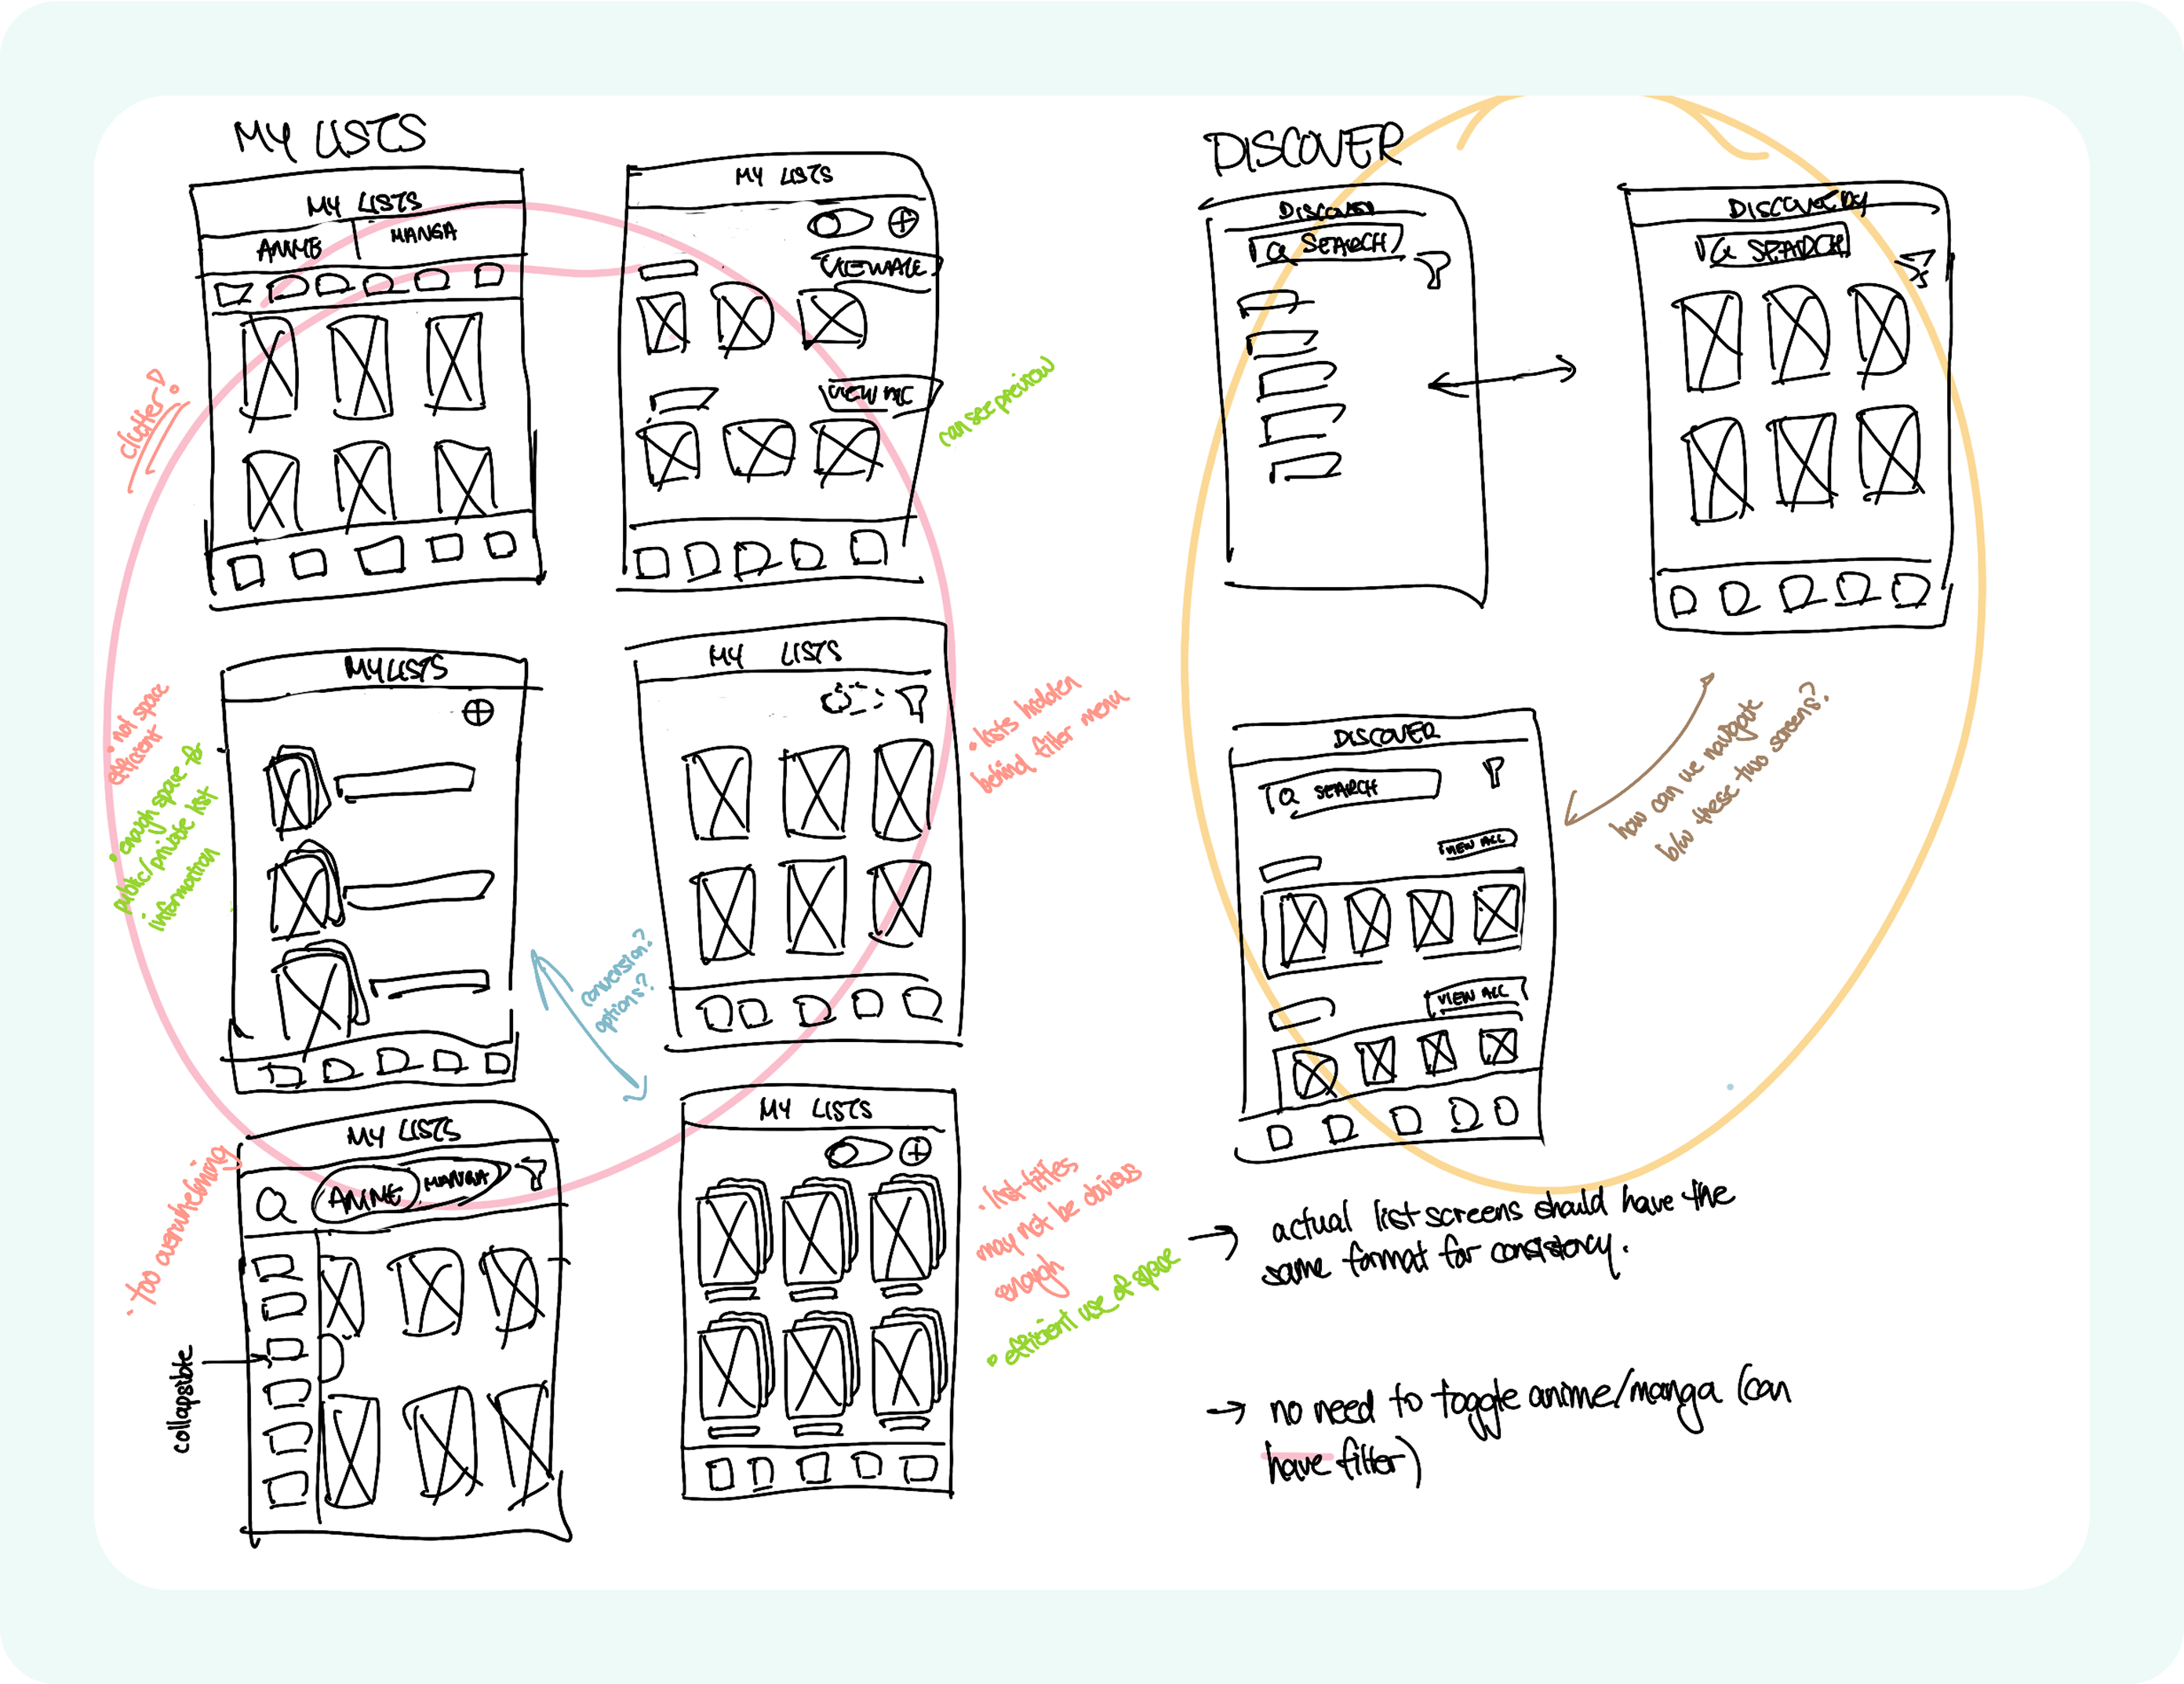 MY LISTS
MY LISTS
ANIME
MANGA
clutter?
MY LISTS
VIEW ALL
VIEW ALL
can see preview
MY LISTS
• not space
efficient
• enough space for
public/private list
information
MY LISTS
• lists hidden
behind filter menu
conversion?
options?
MY LISTS
ANIME
MANGA
• too overwhelming
collapsible
MY LISTS
• list titles
may not be obvious
enough
• efficient use of space
DISCOVER
DISCOVER
SEARCH
DISCOVERY
SEARCH
how can we navigate
b/w these two screens?
DISCOVER
SEARCH
VIEW ALL
VIEW ALL
→ actual list screens should have the
same format for consistency.
→ no need to toggle anime/manga (can
have filter)